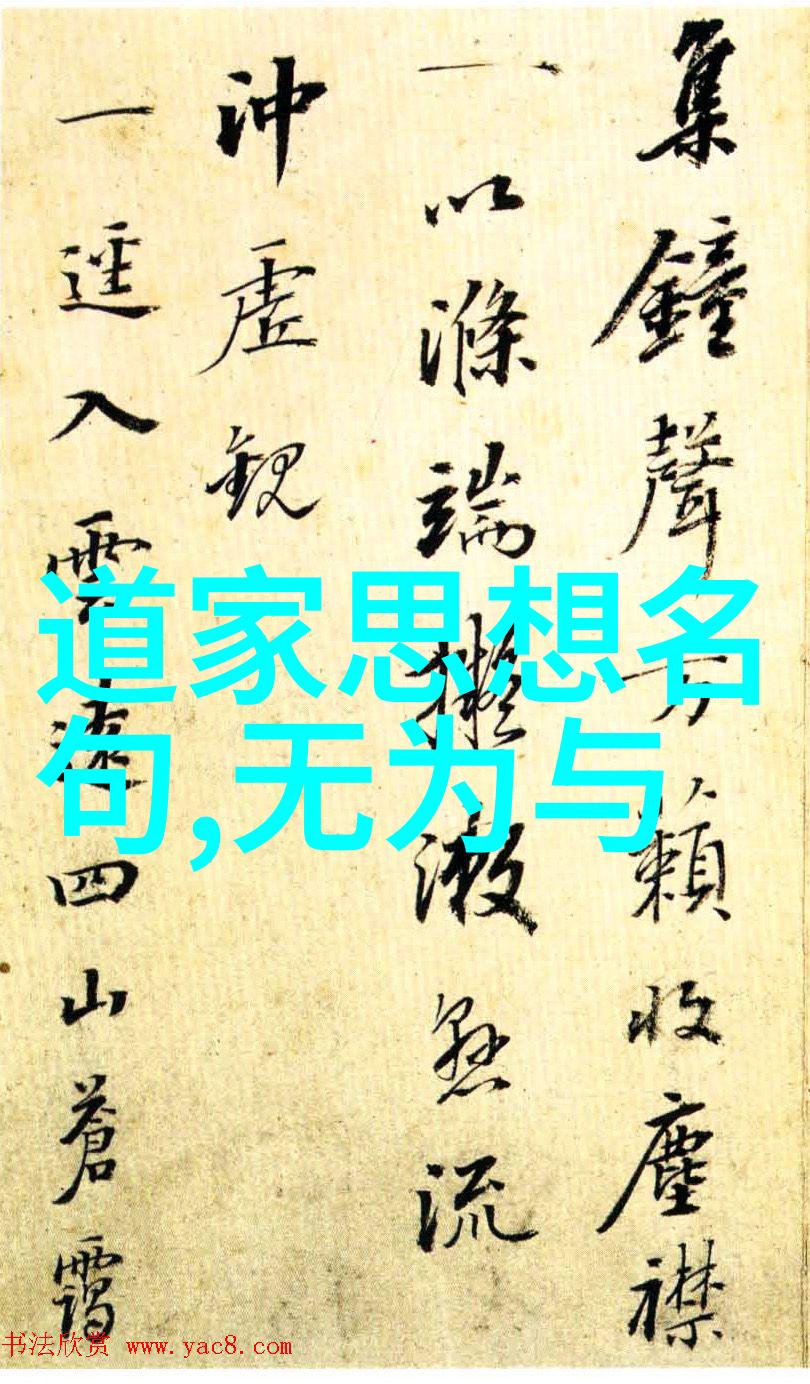 集鐘聲万籟收塵襟
一以滌端擬漱懸流
沖虛觀
一逕入雲遠四山蒼靄
道家思想名
句,无为与
书法欣赏 www.yac8.com